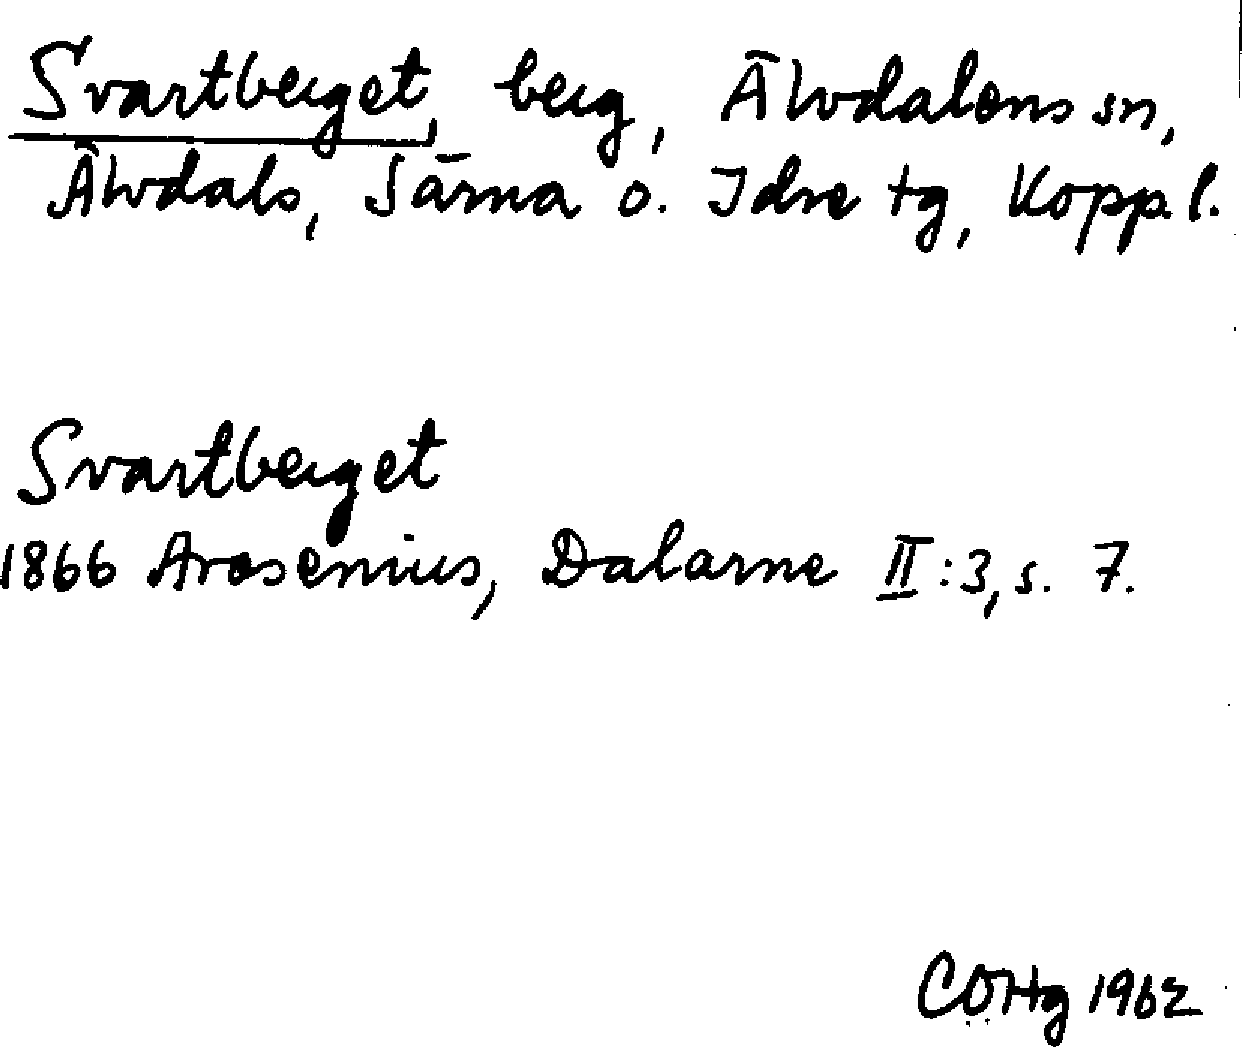 Svartberget, berg, Älvdalens sn,
Älvdals, Särna o. Idre tg, Kopp. l.
Svartberget
1866 Arosenius, Dalarne II:3, s. 7.
COHg 1962